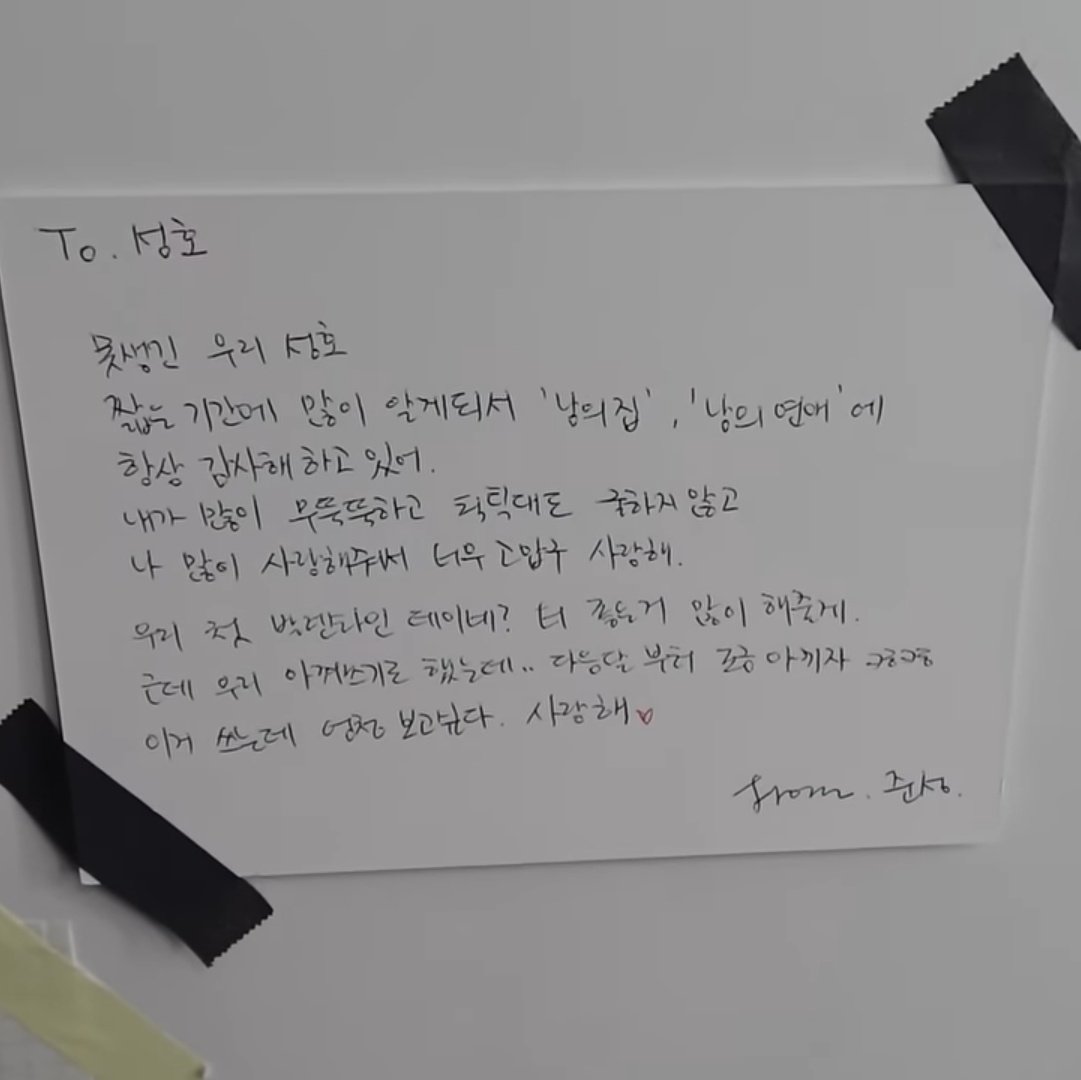 To. 성호
못생긴 우리 성호
짧은 기간에 많이 알게되서 '남의집', '남의연애'에
항상 감사해 하고 있어.
내가 많이 무뚝뚝하고 틱틱대도 굴하지 않고
나 많이 사랑해줘서 너무 고맙구 사랑해.
우리 첫 발렌타인 데이네? 더 좋은거 많이 해줄게.
근데 우리 아껴쓰기로 했는데.. 다음달 부터 조금 아끼자 ㅋㅎㅋㅎ
이거 쓰는데 엄청 보고싶다. 사랑해♡
from. 준성.